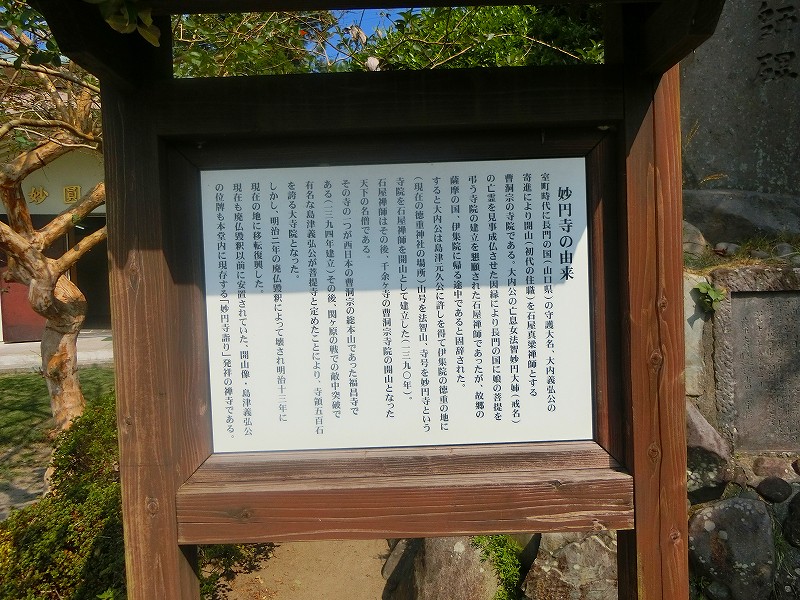 妙円寺の由来
室町時代に長門の国(山口県)の守護大名、大内義弘公の
寄進により開山(初代の住職)を石屋真梁禅師とする
曹洞宗の寺院である。大内公の亡息女法智妙円大姉(戒名)
の亡霊を見事成仏させた因縁により長門の国に娘の菩提を
弔う寺院の建立を懇願された石屋禅師であったが、故郷の
薩摩の国、伊集院に帰る途中であると固辞された。
すると大内公は島津元久公に許しを得て伊集院の徳重の地に
(現在の徳重神社の場所)山号を法智山、寺号を妙円寺という
寺院を石屋禅師を開山として建立した(一三九〇年)。
石屋禅師はその後、千余ヶ寺の曹洞宗寺院の開山となった
天下の名僧である。
その寺の一つが西日本の曹洞宗の総本山であった福昌寺で
ある(一三九四年建立)その後、関ヶ原の戦での敵中突破で
有名な島津義弘公が菩提寺と定めたことにより、寺領五百石
を誇る大寺院となった。
しかし、明治二年の廃仏毀釈によって壊され明治十三年に
現在の地に移転復興した。
現在も廃仏毀釈以前に安置されていた、開山像・島津義弘公
の位牌も本堂内に現存する「妙円寺詣り」発祥の禅寺である。
妙圓